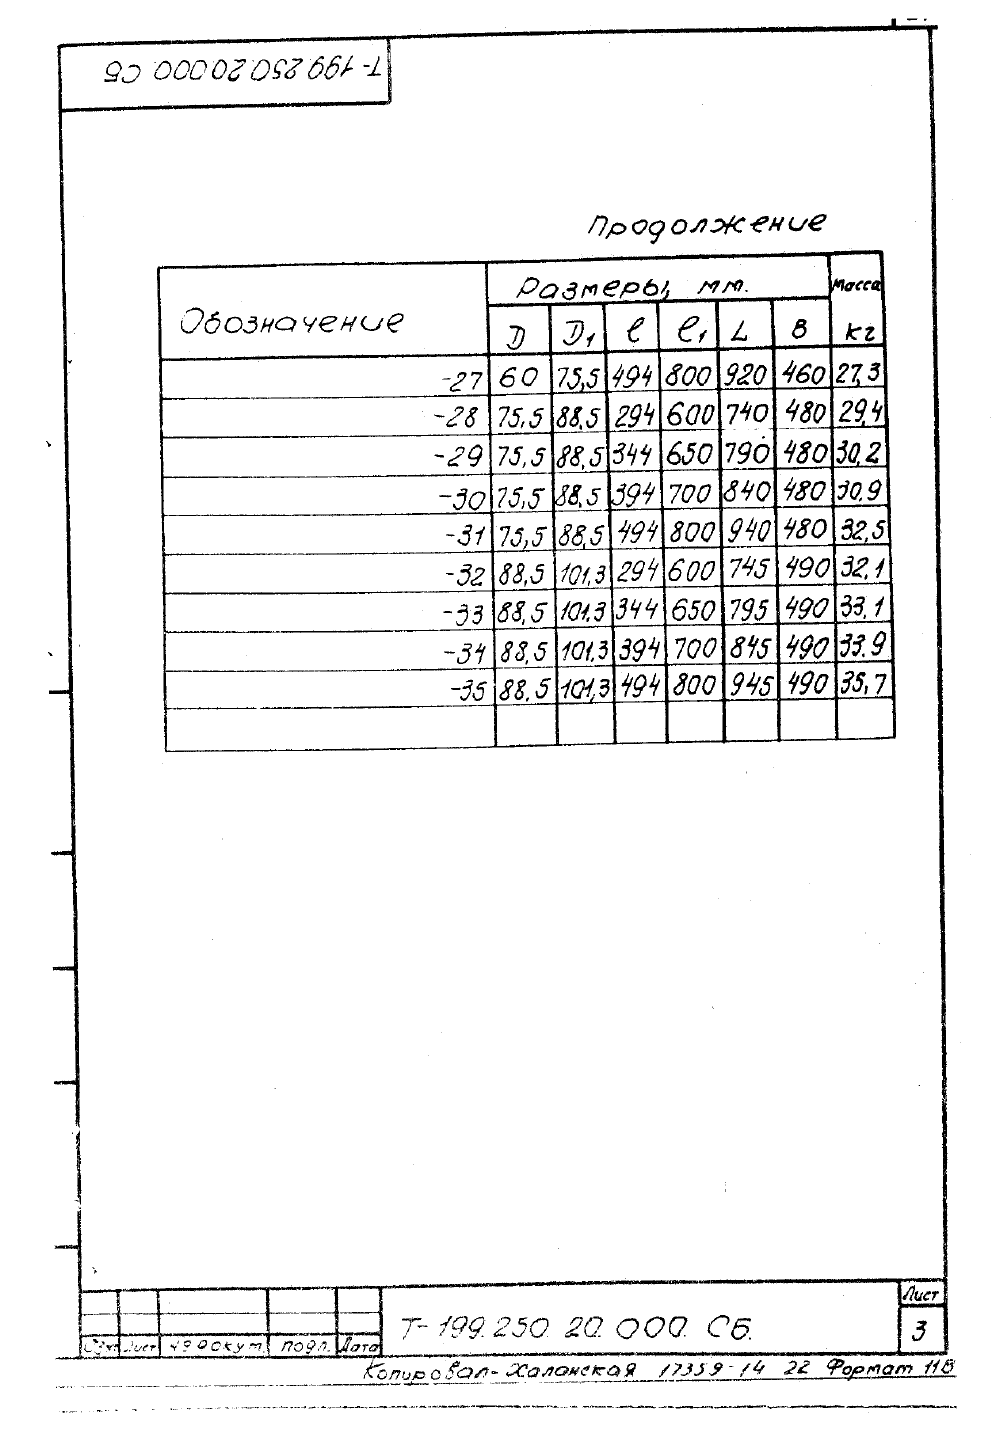 Т-199.250.20.000.СБ
Продолжение
Обозначение Размеры, мм. Масса кг
D D₁ ℓ ℓ₁ L B
-27 60 75,5 494 800 920 460 27,3
-28 75,5 88,5 294 600 740 480 29,4
-29 75,5 88,5 344 650 790 480 30,2
-30 75,5 88,5 394 700 840 480 30.9
-31 75,5 88,5 494 800 940 480 32,5
-32 88,5 101,3 294 600 745 490 32,1
-33 88,5 101,3 344 650 795 490 33,1
-34 88,5 101,3 394 700 845 490 33.9
-35 88,5 101,3 494 800 945 490 35,7
Т-199.250.20.000.Сб.
Лист
3
Лист № докум. подп. Дата
Копировал- Халанская 17359-14 22 Формат 11В